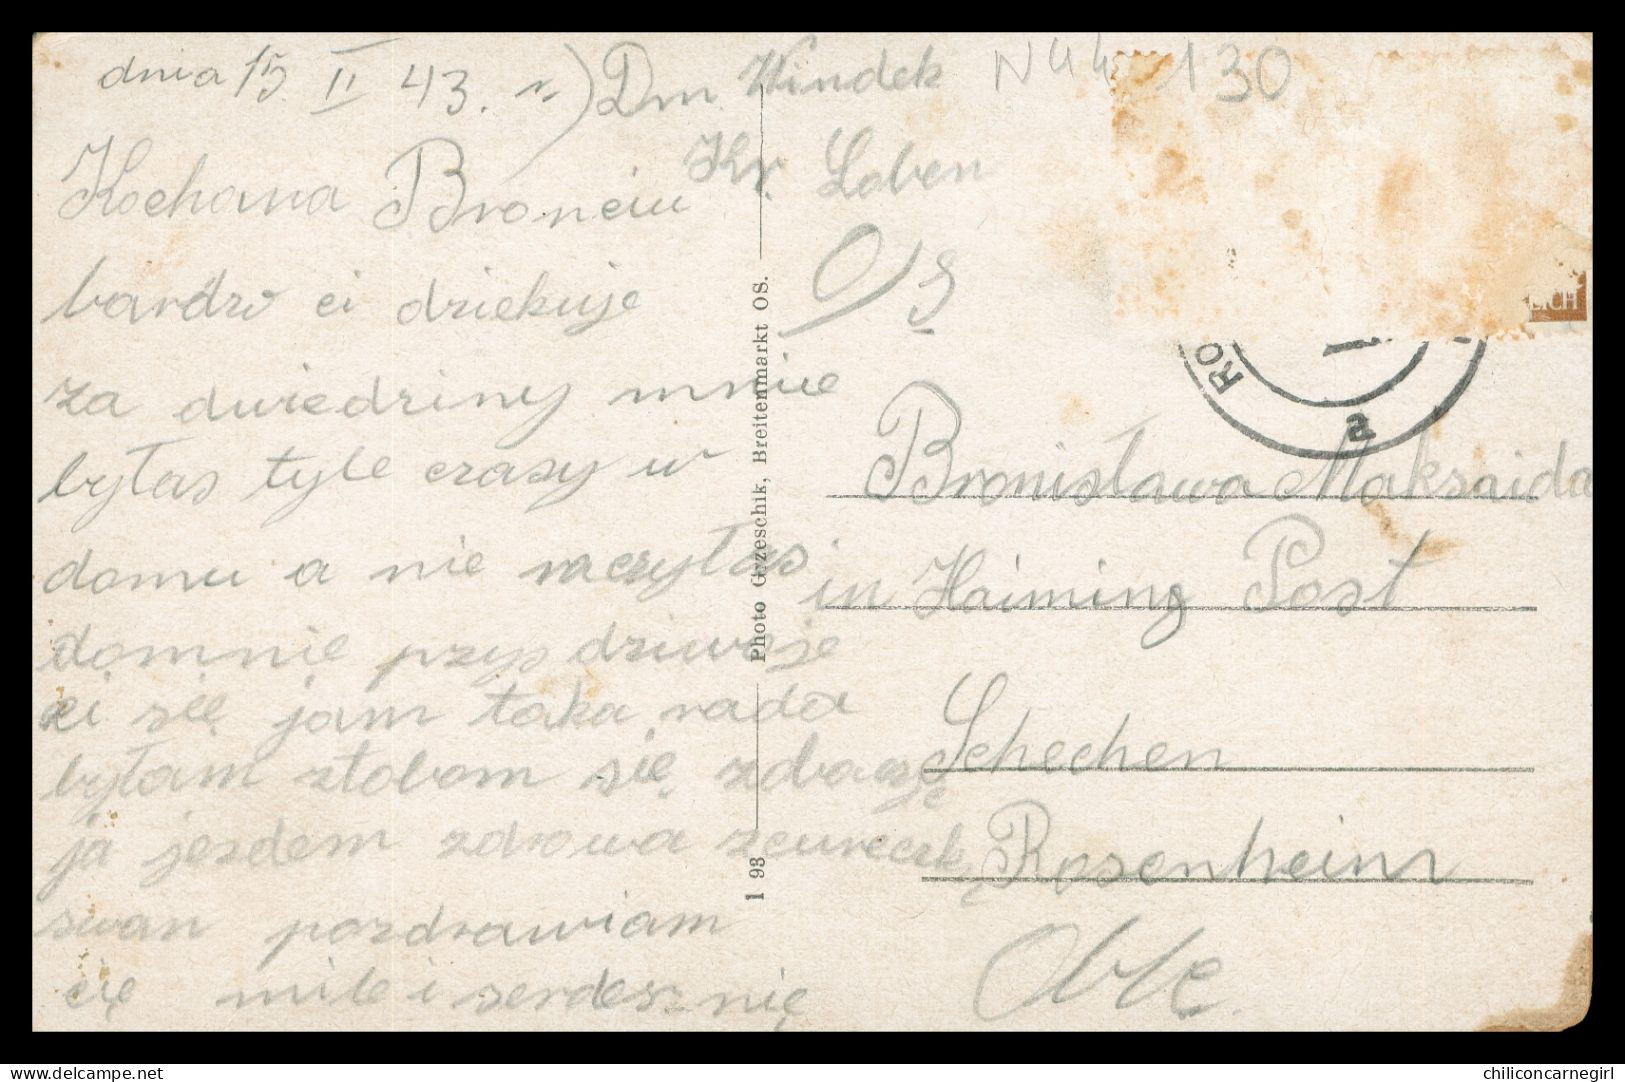 dnia 15 II 43. r.) Dm. Windek
Kr. Loben
O/S
Kochana Bronciu
bardzo ci dziekuje
za dwiedziny mnie
byłas tyle czasy w
domu a nie raczyłas
domnie przyś dziwoje
ci się jam taka rada
byłam stobom się zobaczę
ja jezdem zdrowa
pozdrawiam
cię mile i serdesznię
130
Photo Grzeschik, Breitenmarkt OS.
1 93
LICH
RO
2
Bronisława Maksaida
in Heiming Post
Schechen
Rosenheim
delcampe.net
chiliconcarnegirl